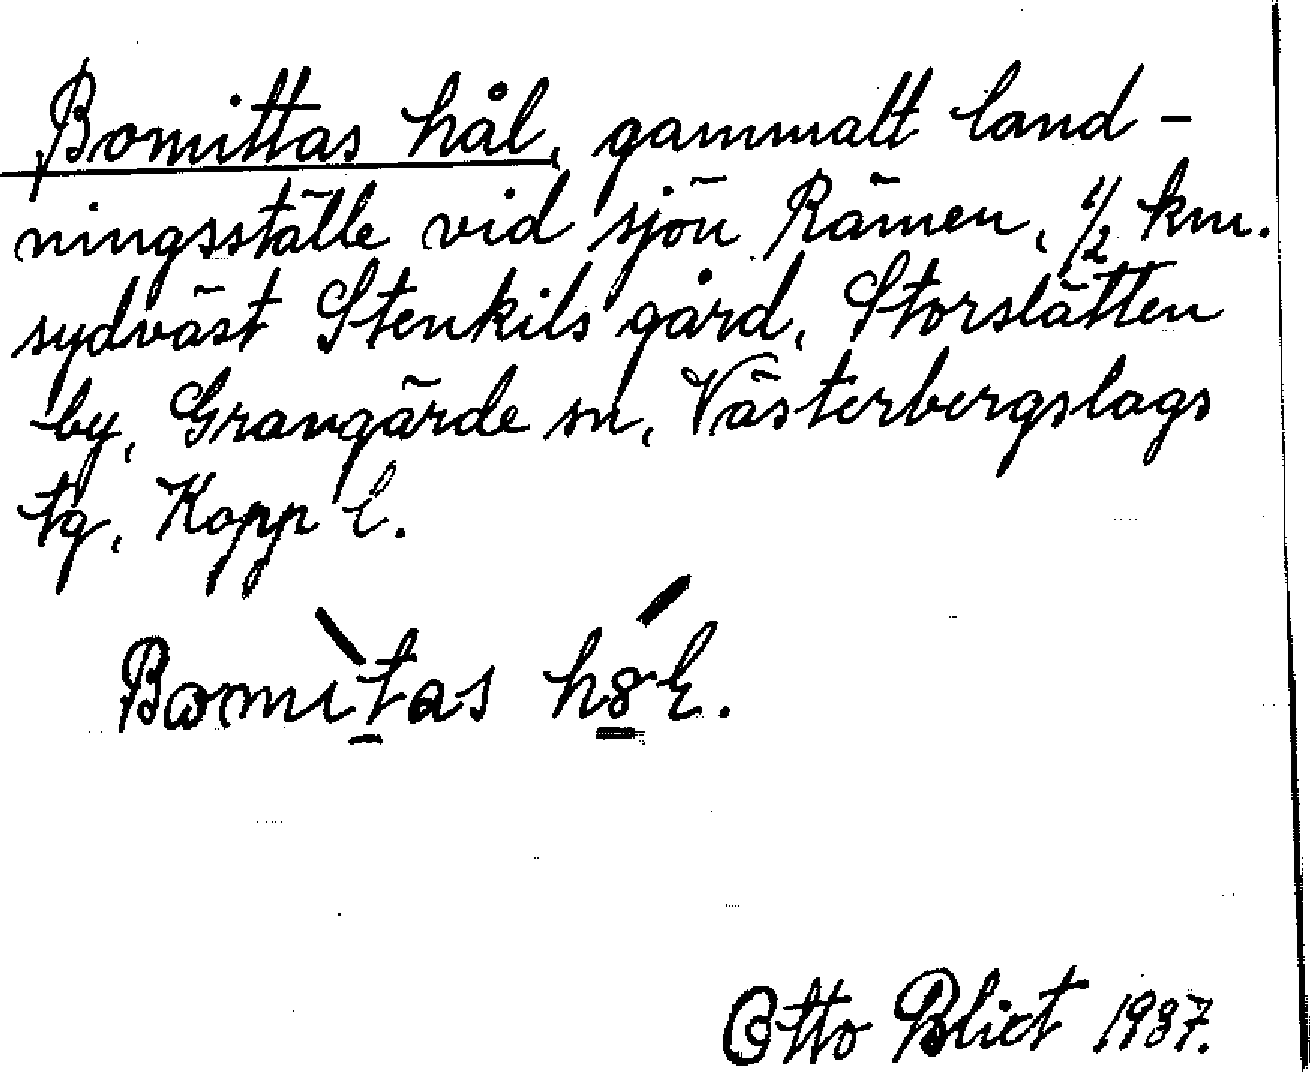 Bomittas hål, gammalt land-
ningsställe vid sjön Rämen, 1/2 km.
sydväst Stenkils gård, Storslätten
by, Grangärde sn, Västerbergslags
tg, Kopp l.
Otto Blixt 1937.